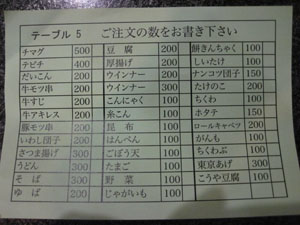 テーブル 5 ご注文の数をお書き下さい
チマグ 500 豆腐 200 餅きんちゃく 100
テビチ 400 厚揚げ 200 しいたけ 100
だいこん 200 ウインナー 200 ナンコツ団子 150
牛モツ串 200 ウインナー 300 たけのこ 200
牛すじ 200 こんにゃく 100 ちくわ 100
牛アキレス 200 糸こん 100 ホタテ 150
豚モツ串 200 昆布 100 ロールキャベツ 200
いわし団子 200 はんぺん 100 がんも 100
さつま揚げ 300 ごぼう天 100 ちくわぶ 100
うどん 300 たまご 100 東京あげ 300
そば 300 野菜 100 こうや豆腐 100
ゆば 200 じゃがいも 100